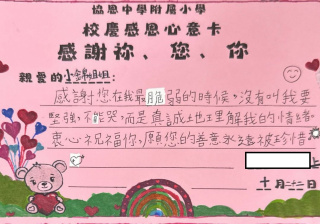 協恩中學附屬小學
校慶感恩心意卡
感謝祢、您、你
親愛的小錦姐姐:
感謝您在我最脆弱的時候,沒有叫我要
堅強,不能哭,而是真誠地世理解我的情緒。
衷心祝福你,願您的善意永遠被珍惜
上
十月二十二日